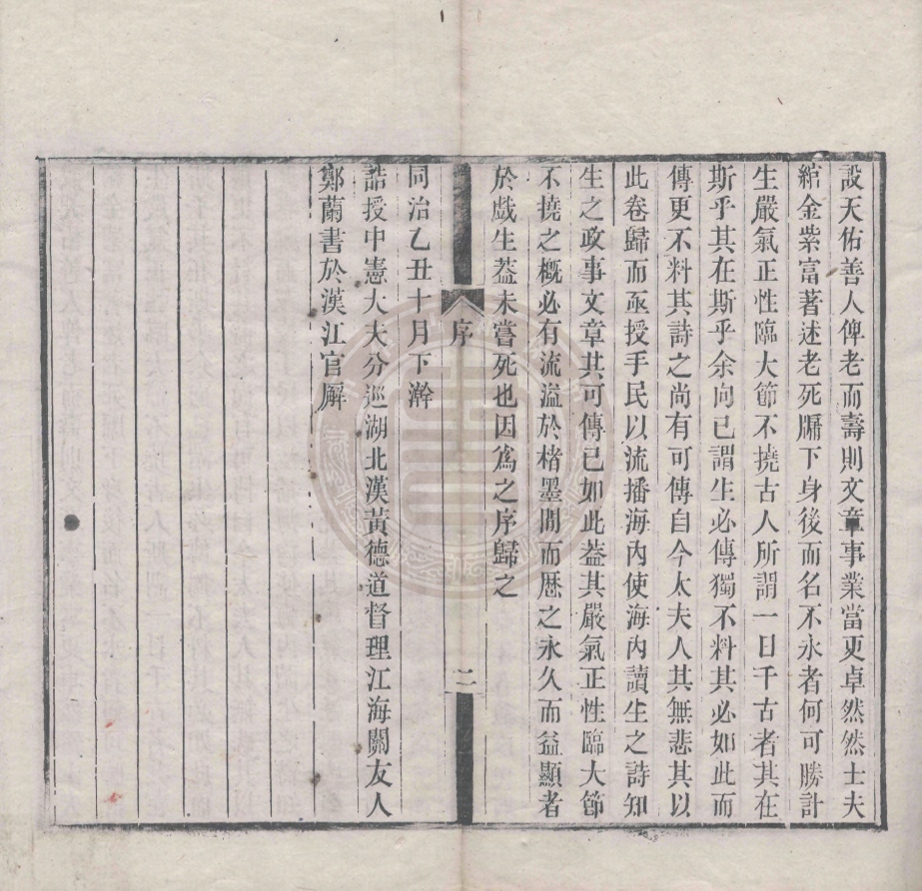 設天佑善人俾老而壽則文章事業當更卓然然士夫
綰金紫富著述老死牖下身後而名不永者何可勝計
生嚴氣正性臨大節不撓古人所謂一日千古者其在
斯乎其在斯乎余向已謂生必傳獨不料其必如此而
傳更不料其詩之尚有可傳自今太夫人其無悲其以
此卷歸而亟授手民以流播海內使海內讀生之詩知
生之政事文章其可傳已如此葢其嚴氣正性臨大節
不撓之概必有流溢於楮墨間而歷之永久而益顯者
於戲生葢未嘗死也因爲之序歸之
序
二
同治乙丑十月下澣
誥授中憲大夫分巡湖北漢黃德道督理江海關友人
鄭蘭書於漢江官廨